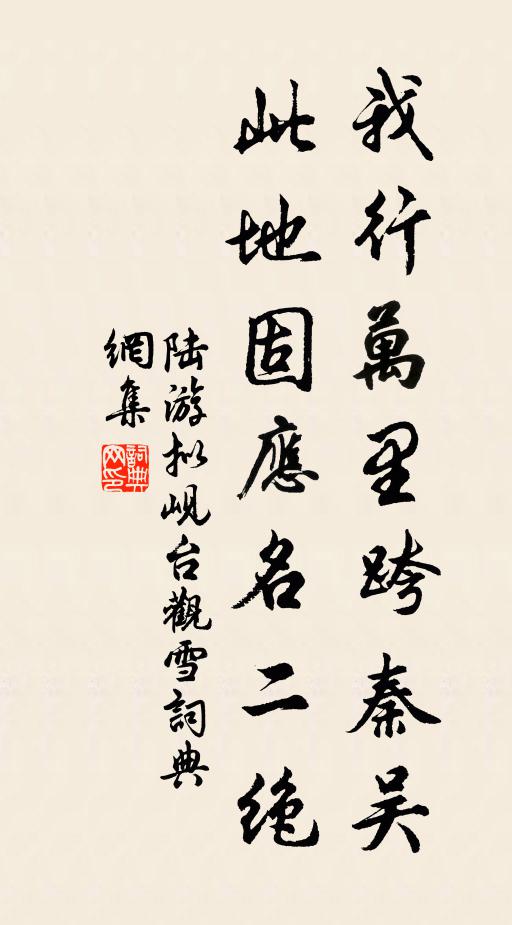 我行萬里跨秦吴
此地固應名二绝
陆游拟岘台觀雪詞典
網集
詞典网印